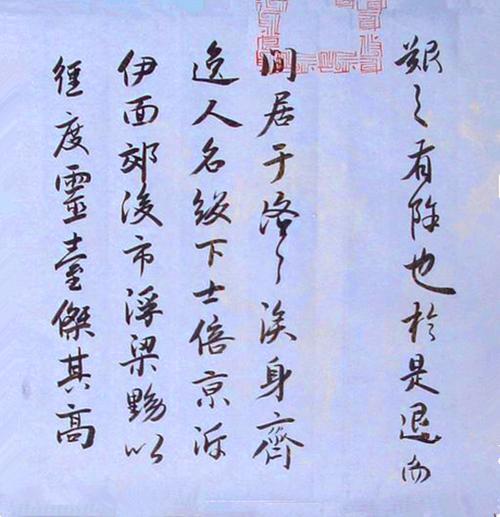 艱之有餘也於是退而
閒居于洛之涘身齊
逸人名綴下士倍京泝
伊面郊後市浮梁黝以
徑度靈臺傑其高